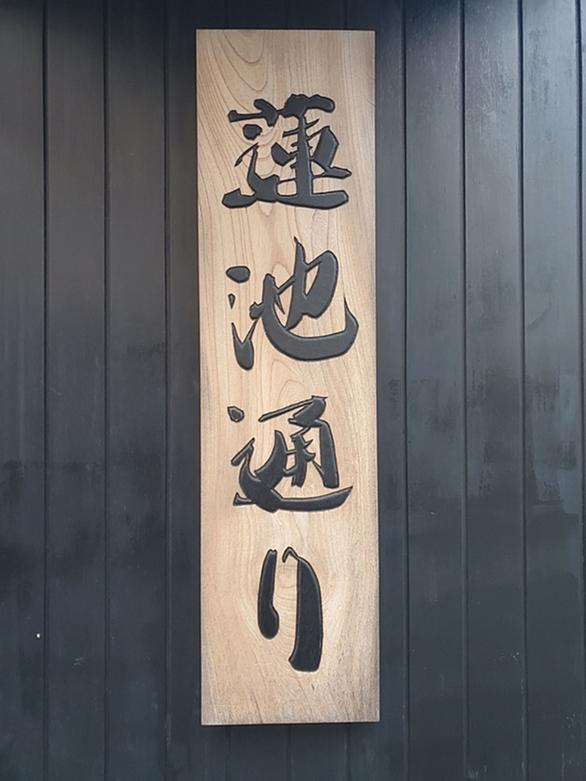 蓮池通り